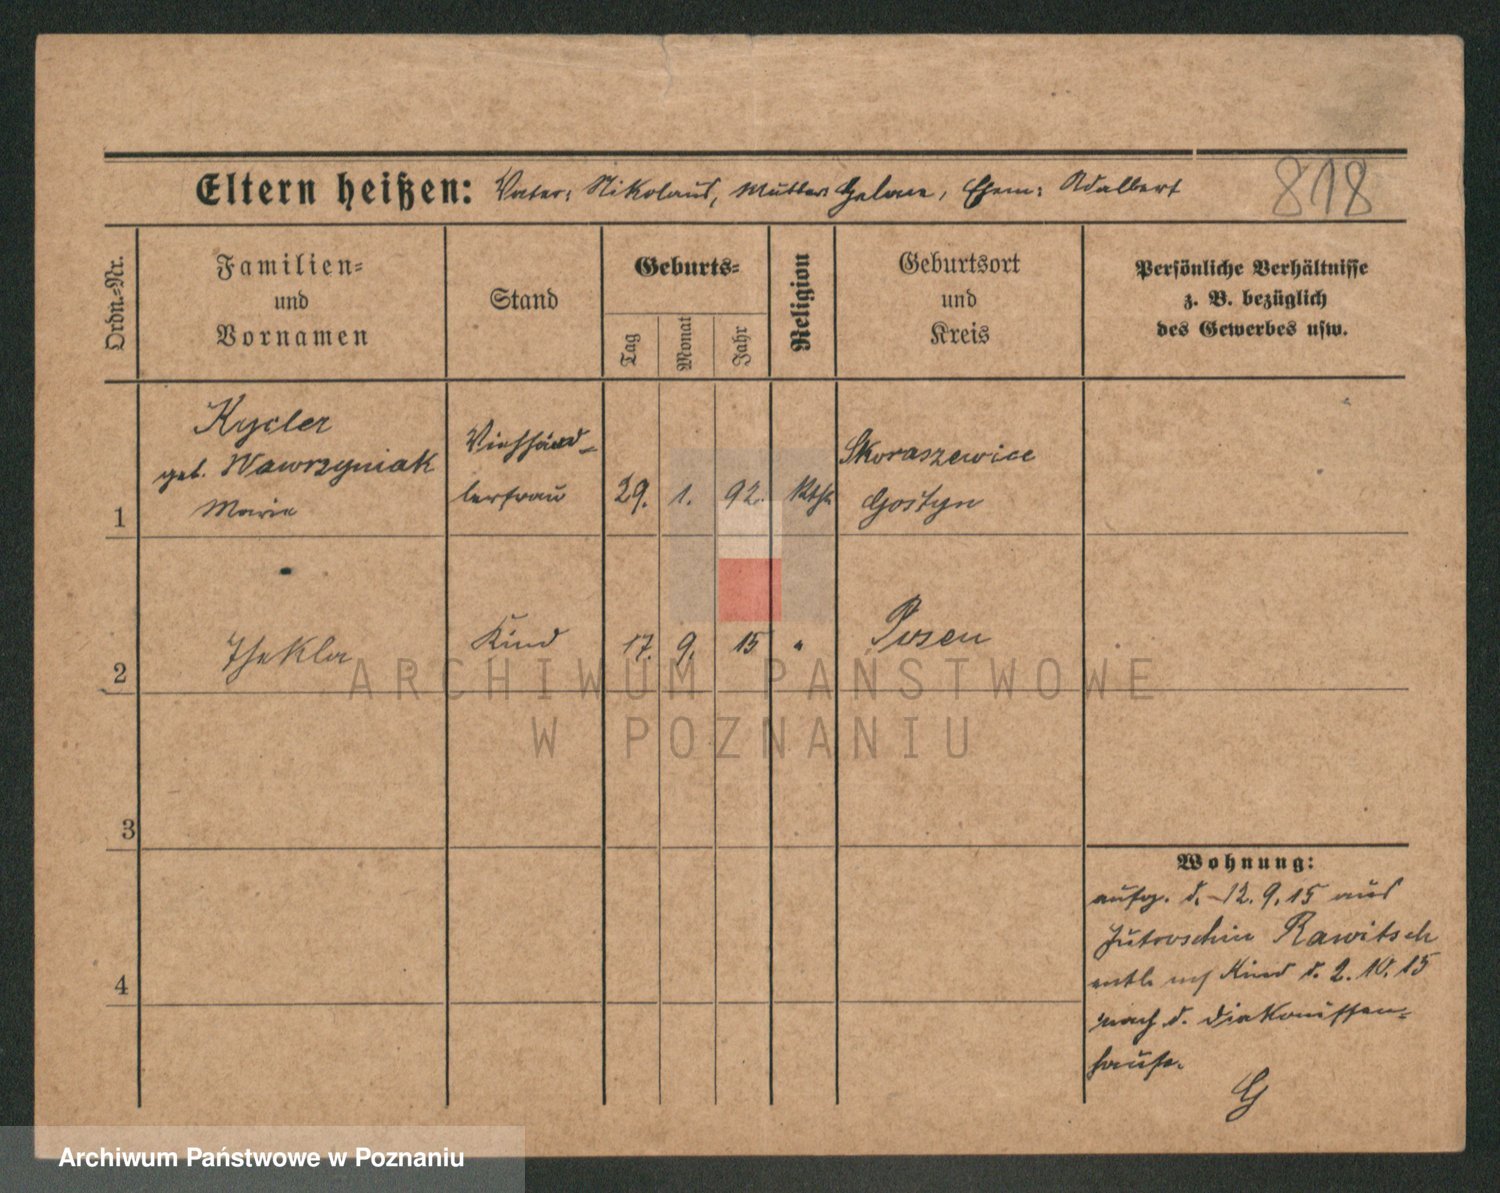 818
Eltern heißen: Vater: Nikolaus, Mutter: Helene, Ehem: Adalbert
Ordn.-Nr.
Familien-
und
Vornamen
Stand
Geburts-
Tag
Monat
Jahr
Religion
Geburtsort
und
Kreis
Persönliche Verhältnisse
z. B. bezüglich
des Gewerbes usw.
1
Kycler
geb. Wawrzyniak
Marie
Viehhänd-
lerfrau
29.
1.
92.
kath
Skoraszewice
Gostyn
2
Thekla
Kind
17.
9.
15
"
Posen
ARCHIWUM PAŃSTWOWE
W POZNANIU
3
4
Wohnung:
aufg. d. 12.9.15 aus
Jutroschin Rawitsch
entl. Kind d. 2.10.15
nach d. Diakonissen-
hause.
Archiwum Państwowe w Poznaniu